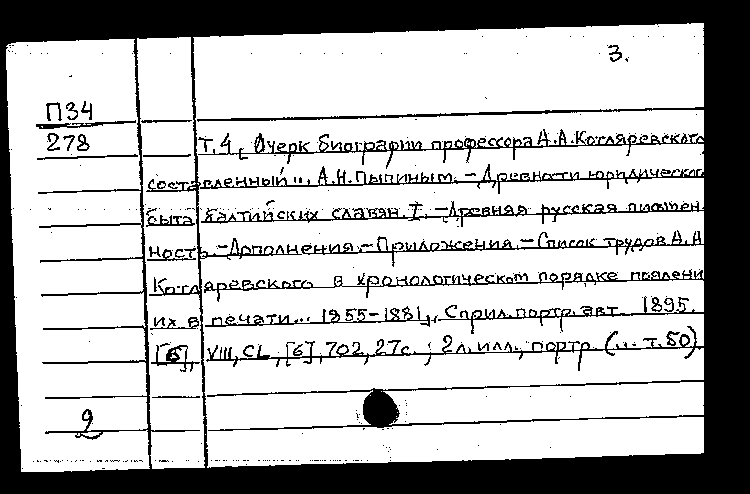 3.
П34
278
Т.4 [Очерк биографии профессора А.А.Котляревского
составленный... А.Н.Пыпиным.-Древности юридического
быта балтийских славян. I.-Древняя русская письмен-
ность.-Дополнения.-Приложения.-Список трудов А.А.
Котляревского в хронологическом порядке появлени
их в печати... 1855-1881]. С прил. портр. авт. 1895.
[6], VIII, CL, [6], 702, 27с.; 2л. илл., портр. (... т.50).
2